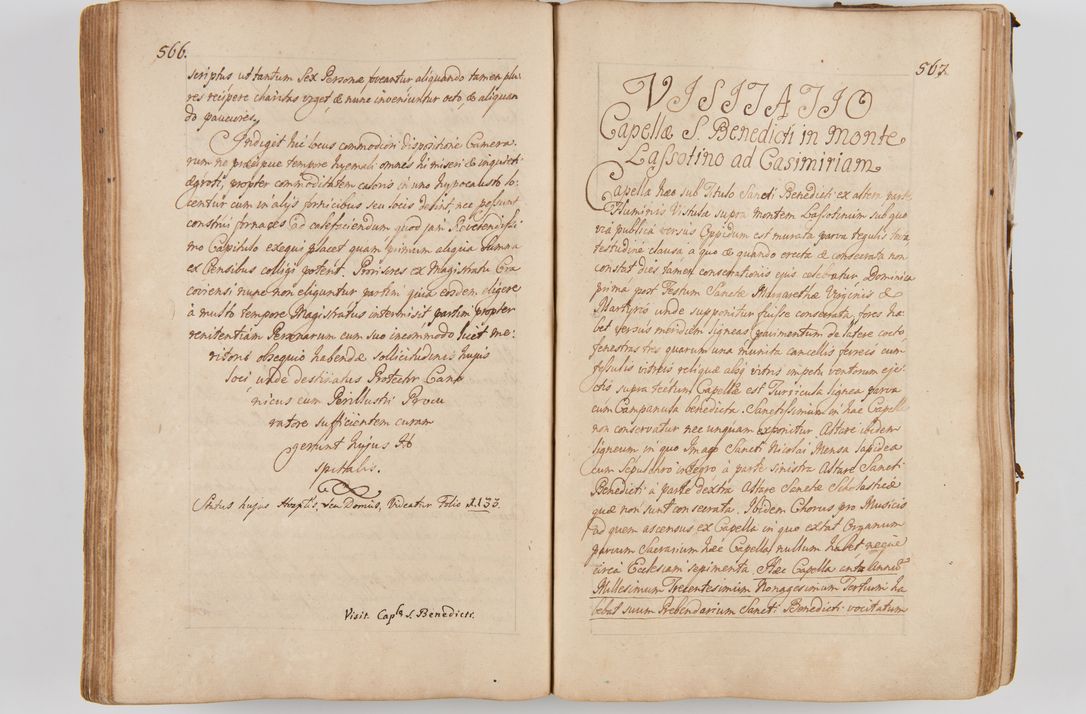 566.
scriptus ut tantum Sex Personæ foveantur aliquando tamen plu
res recipere charitas urget & nunc inveniuntur octo, & aliquan
do pauciores.
Indiget hic locus commodiori dispositione Camera-
rum ne præcipue tempore hyemali omnes hi miseri &
ægroti, propter commoditatem caloris in uno hypocausto lo-
centur cum in alijs fornicibus seu locis nec possunt
construi fornaces ad calefaciendum quod jam Reverendissi
mo Capitulo exequi placet quam primum aliqua summa
ex Censibus colligi poterit. Provisores ex Magistratu Cra
coviensi nunc non eliguntur partim quia eosdem eligere
a multo tempore Magistratus intermisit partim propter
renitentiam Personarum cum suo incommodo licet me:
ritorio obsequio habendæ sollicitudinis hujus
loci unde destinatus Protector Cano
nicus cum Perillustri Procu
ratore sufficientem curam
gerunt hujus Ho
spitalis.
Status hujus Hosptis, seu Domus, Videatur Folio 1133.
Visit. Caplæ S. Benedicti.
567.
VISITATIO
Capellæ S. Benedicti in Monte
Lassotino ad Casimiriam
Capella hæc sub Titulo Sancti Benedicti ex altera parte
Fluminis Vistulæ supra montem Lassotinum sub quo
via publica versus Oppidum est murata parva tegulis tecta
testudine clausa a quo & quando erecta & consecrata non
constat dies tamen consecrationis ejus celebratur Dominica
prima post Festum Sanctæ Margarethæ Virginis &
Martyris unde supponitur fuisse consecrata, fores ha
bet versus meridiem ligneas pavimentum de latere cocto
fenestras tres quarum una munita cancellis ferreis cum
fistulis vitreis reliquæ absq vitris impetu ventorum eje
ctis supra tectum Capellæ est Turricula lignea parva
cum Campanula benedicta. Sanctissimum in hac Capella
non conservatur nec unquam exponitur Altare ibidem
ligneum in quo Imago Sancti Nicolai Mensa lapidea
cum Sepulchro integro a parte sinistra Altare Sancti
Benedicti a parte dextra Altare Sanctæ Scholasticæ
quæ non sunt consecrata. Ibidem Chorus pro Musicis
ad quem ascensus ex Capella in quo extat Organum
parvum Sacrarium hæc Capella nullum habet neque
circa Ecclesiam sepimenta Hæc Capella ante Annum
Millesimum Trecentesimum Nonagesimum Tertium ha
bebat suum Præbendarium Sancti Benedicti vocitatum